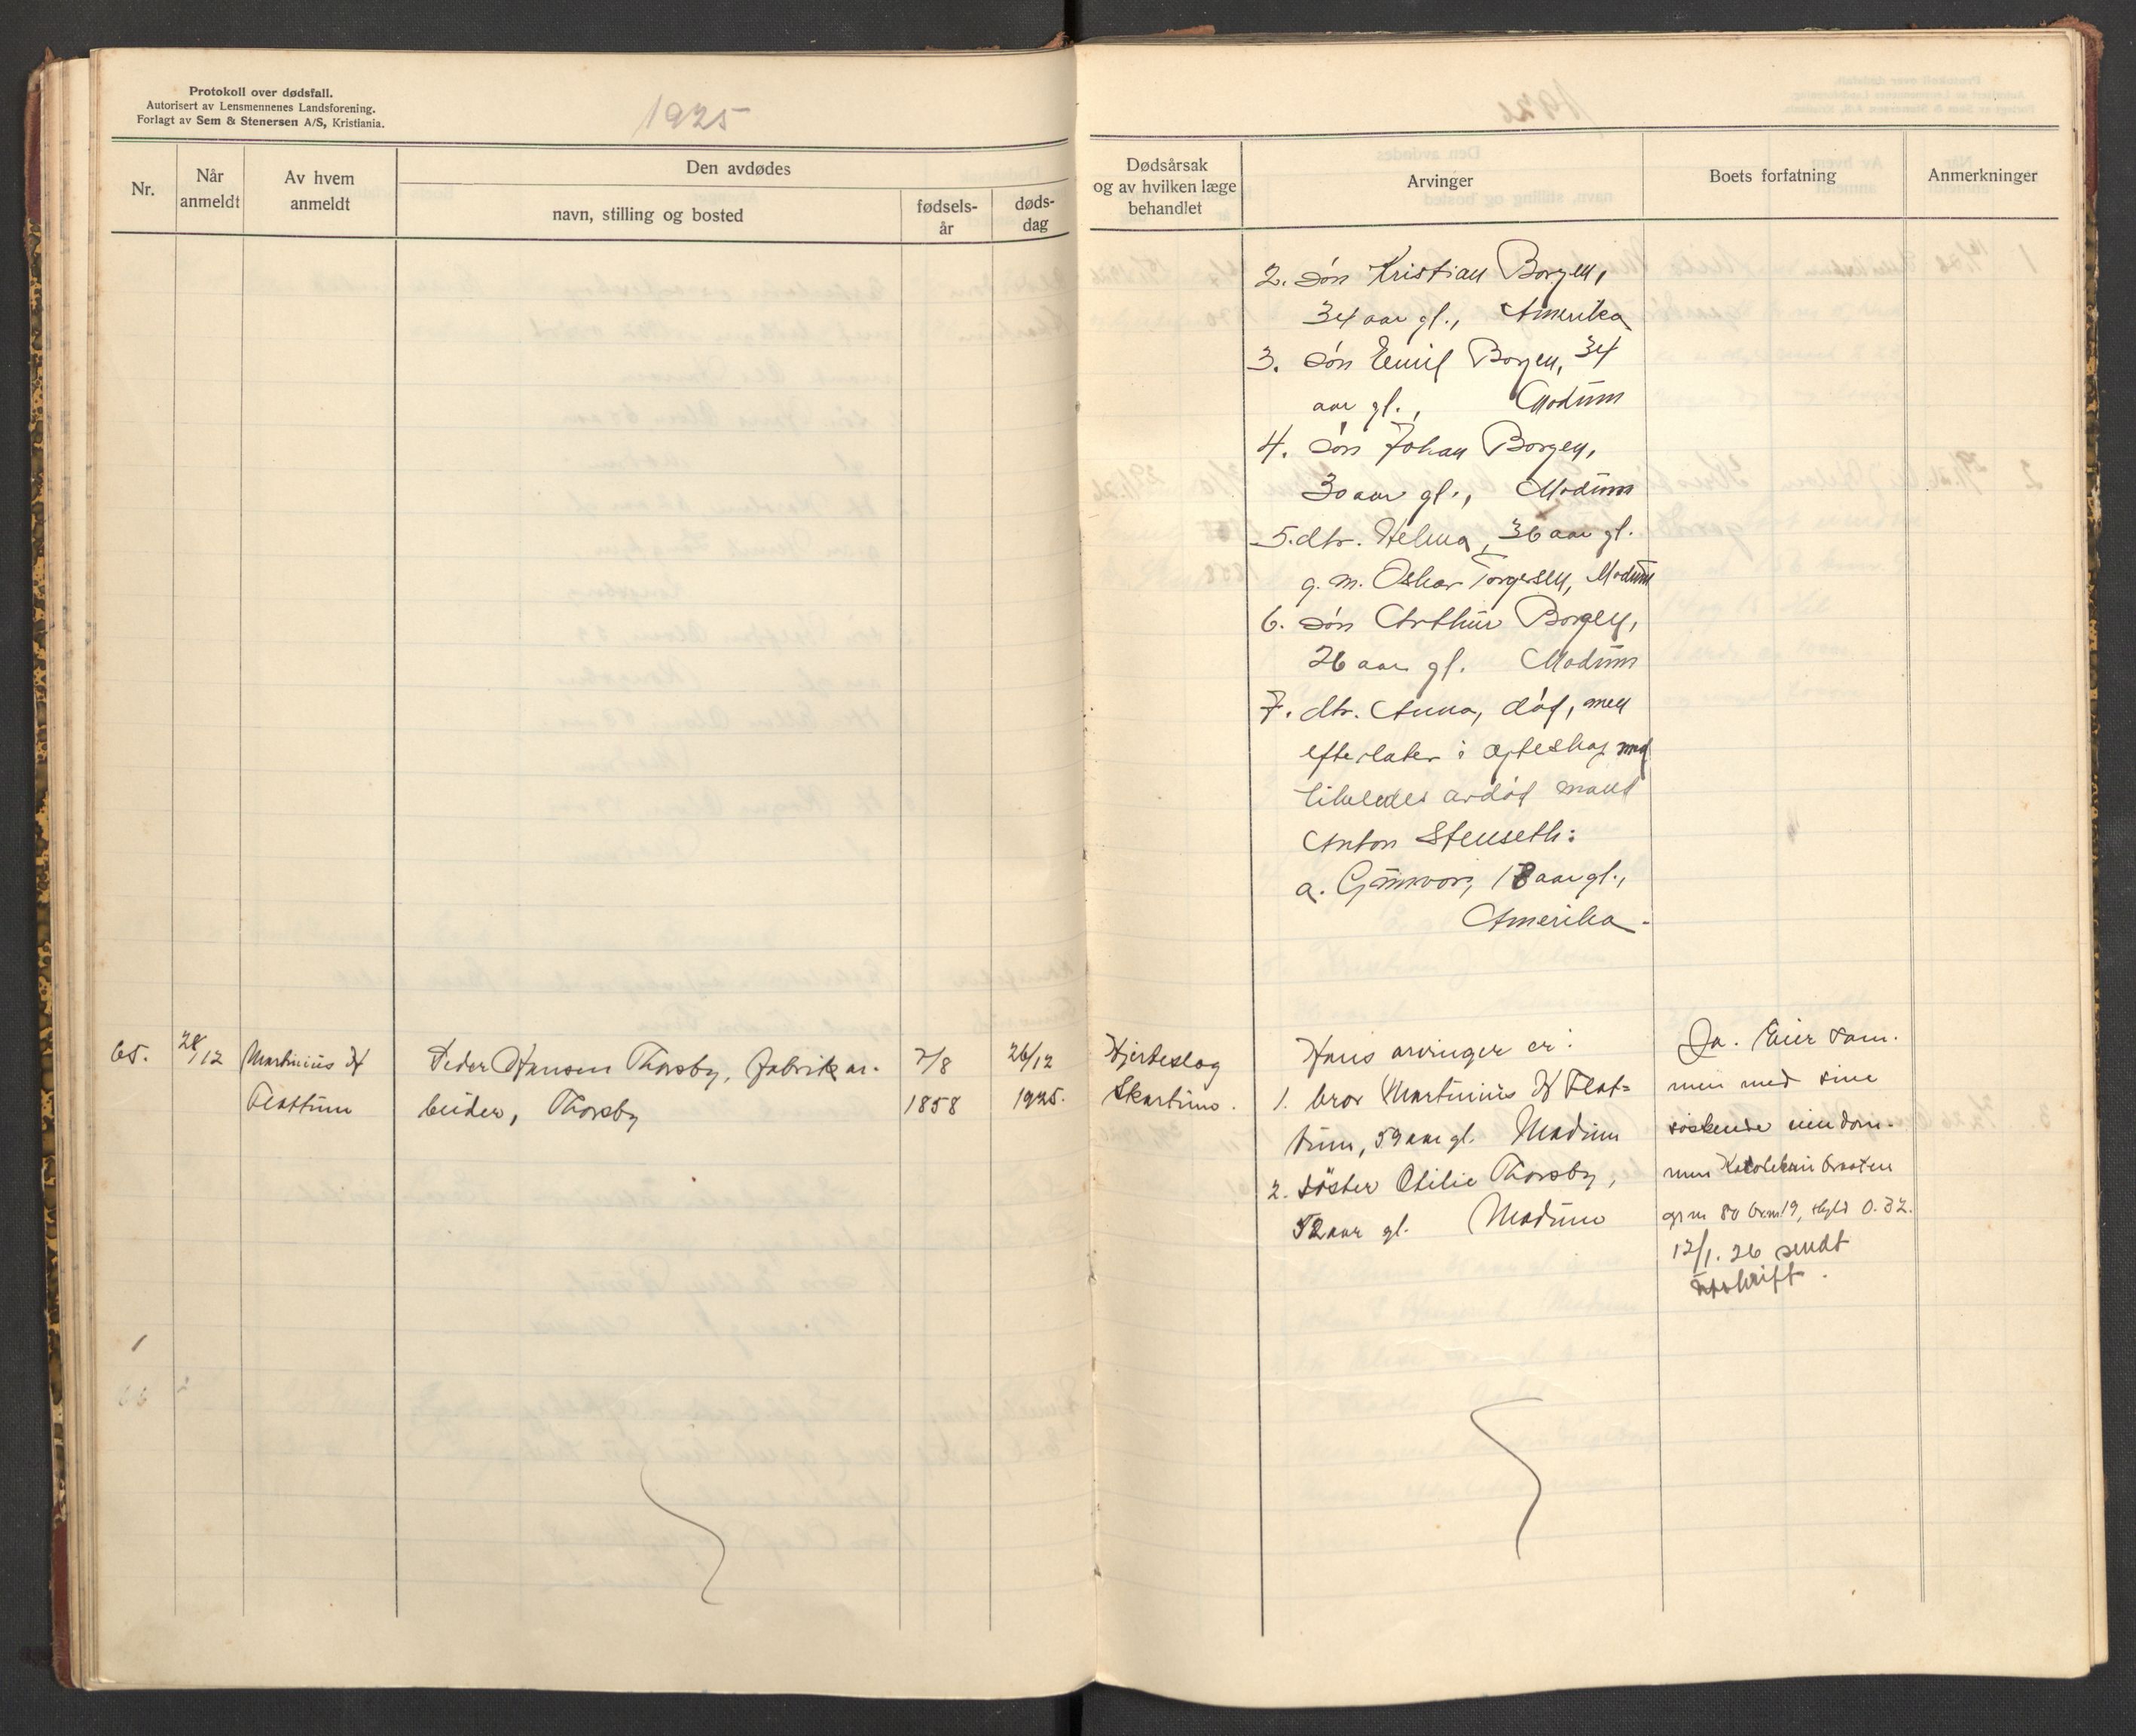 Protokoll over dødsfall.
Autorisert av Lensmennenes Landsforening.
Forlagt av Sem & Stenersen A/S, Kristiania.
1925
Nr.
Når anmeldt
Av hvem anmeldt
Den avdødes
navn, stilling og bosted
fødsels-år
døds-dag
Dødsårsak og av hvilken læge behandlet
Arvinger
Boets forfatning
Anmerkninger
2. søn Kristian Borgen,
34 aar gl., Amerika
3. søn Emil Borgen, 34
aar gl., Modum
4. søn Johan Borgen,
30 aar gl., Modum
5. dtr. Helma, 36 aar gl.
g. m. Oskar Torgersen, Modum
6. søn Arthur Borgen,
26 aar gl. Modum
7. dtr. Anna, død, men
efterlater i egteskap med
likeledes avdød mand
Anton Stenseth:
a. Gunvor, 18 aar gl.,
Amerika.
65.
28/12
Martinius H
Flattum
Peder Hansen Thorsby, fabrikar-
beider, Thorsby
7/8
1858
26/12
1925.
Hjerteslag
Skartum.
Hans arvinger er:
1. bror Martinius H Flat=
tum, 59 aar gl. Modum
2. søster Otilie Thorsby,
52 aar gl. Modum
Ja. Eier sam-
men med sine
søskende eiendom-
men
grn 80 brn 19, skyld 0.32.
12/1. 26 sendt
avskrift.